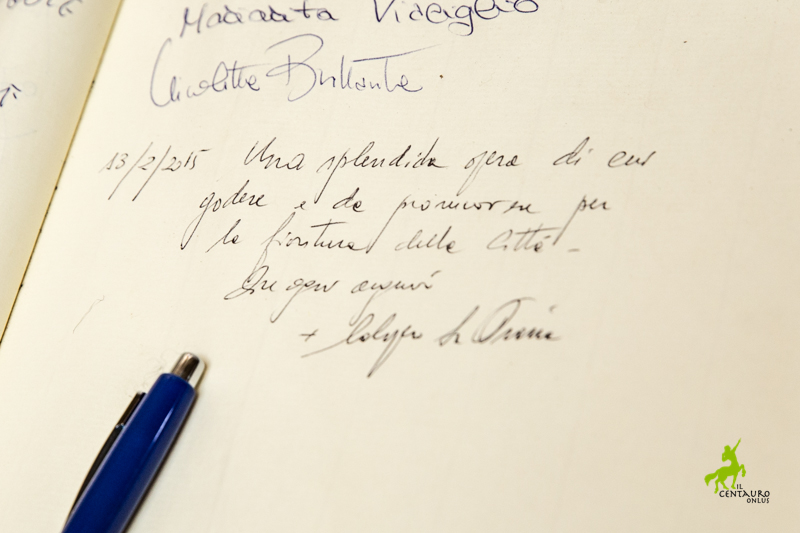 Margarita
Nicoletta Brillante.
13/2/2015 Una splendida opera di cui
godere e da promuovere per
la fioritura della Città -
Ore ogni
+ Calogero La Piana
IL
CENTAURO
ONLUS